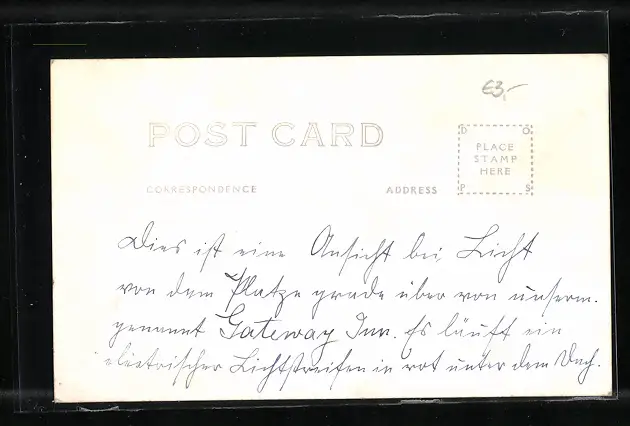 €3,-
POST CARD
D O
PLACE
STAMP
HERE
P S
CORRESPONDENCE ADDRESS
Dies ist eine Ansicht bei Licht
von dem Platze grade über von unserm.
genannt Gateway Inn. Es läuft ein
elektrischer Lichtstreifen in rot unter dem Dach.